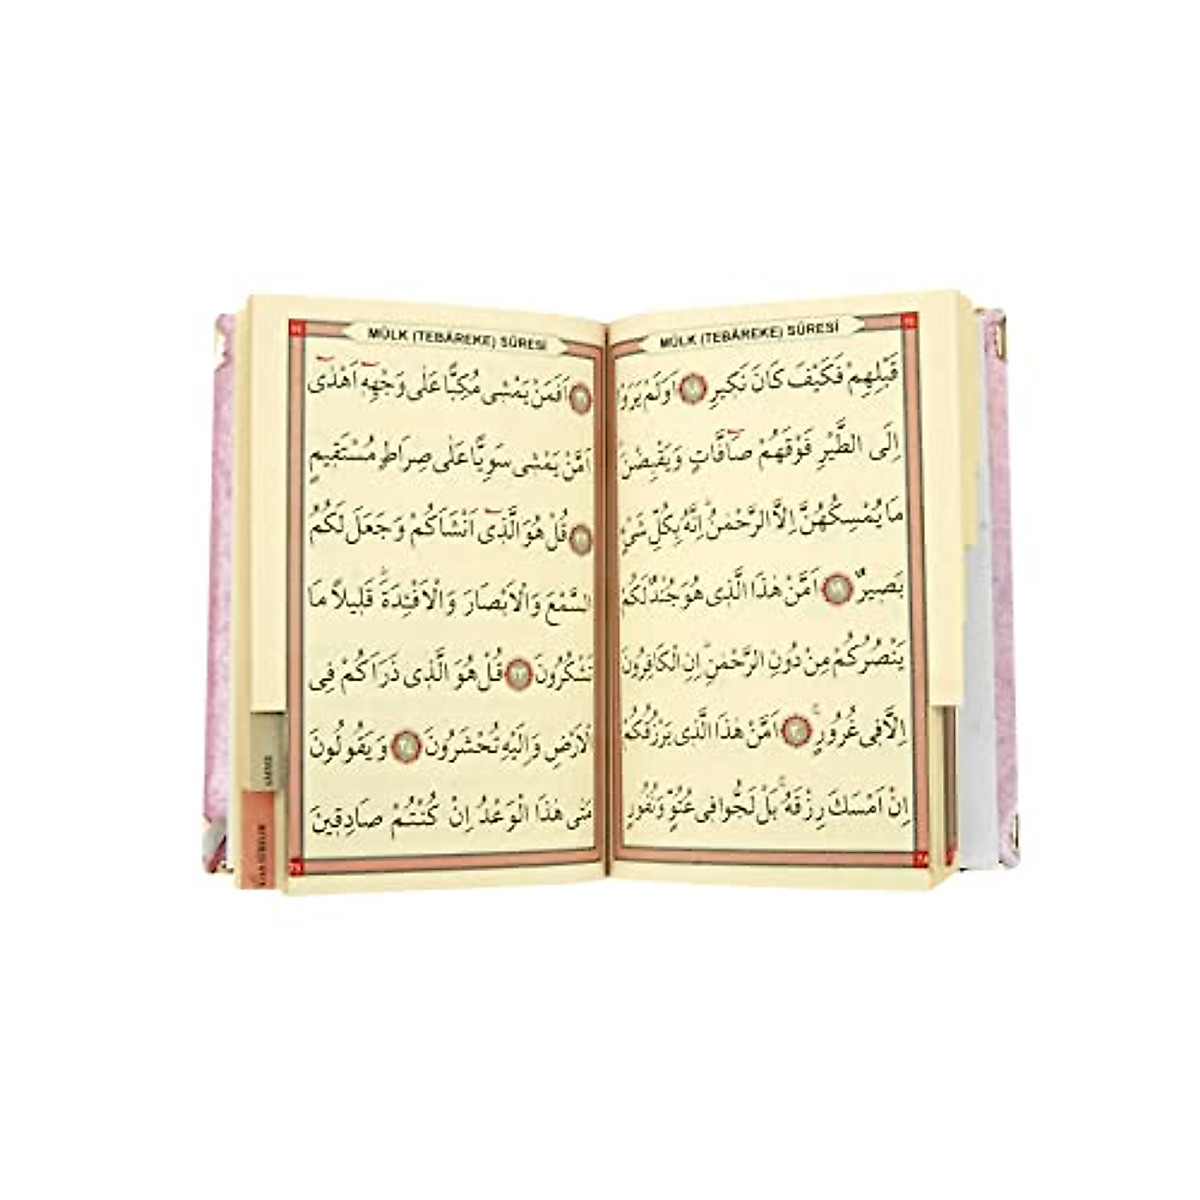 MÜLK (TEBÂREKE) SÛRESİ
قَبْلِهِمْ فَكَيْفَ كَانَ نَكٖيرِ ١٨ اَوَلَمْ يَرَوْا
اِلَى الطَّيْرِ فَوْقَهُمْ صَٓافَّاتٍ وَيَقْبِضْنَ
مَا يُمْسِكُهُنَّ اِلَّا الرَّحْمٰنُ اِنَّهُ بِكُلِّ شَيْءٍ
بَصٖيرٌ ١٩ اَمَّنْ هٰذَا الَّذٖى هُوَ جُنْدٌ لَكُمْ
يَنْصُرُكُمْ مِنْ دُونِ الرَّحْمٰنِ اِنِ الْكَافِرُونَ
اِلَّا فٖى غُرُورٍ ٢٠ اَمَّنْ هٰذَا الَّذٖى يَرْزُقُكُمْ
اِنْ اَمْسَكَ رِزْقَهُ بَلْ لَجُّوا فٖى عُتُوٍّ وَنُفُورٍ
MÜLK (TEBÂREKE) SÛRESİ
٢١ اَفَمَنْ يَمْشٖى مُكِبًّا عَلٰى وَجْهِهٖٓ اَهْدٰٓى
اَمَّنْ يَمْشٖى سَوِيًّا عَلٰى صِرَاطٍ مُسْتَقٖيمٍ
٢٢ قُلْ هُوَ الَّذٖٓى اَنْشَاَكُمْ وَجَعَلَ لَكُمُ
السَّمْعَ وَالْاَبْصَارَ وَالْاَفْئِدَةَ قَلٖيلًا مَا
تَشْكُرُونَ ٢٣ قُلْ هُوَ الَّذٖى ذَرَاَكُمْ فِى
الْاَرْضِ وَاِلَيْهِ تُحْشَرُونَ ٢٤ وَيَقُولُونَ
مَتٰى هٰذَا الْوَعْدُ اِنْ كُنْتُمْ صَادِقٖينَ